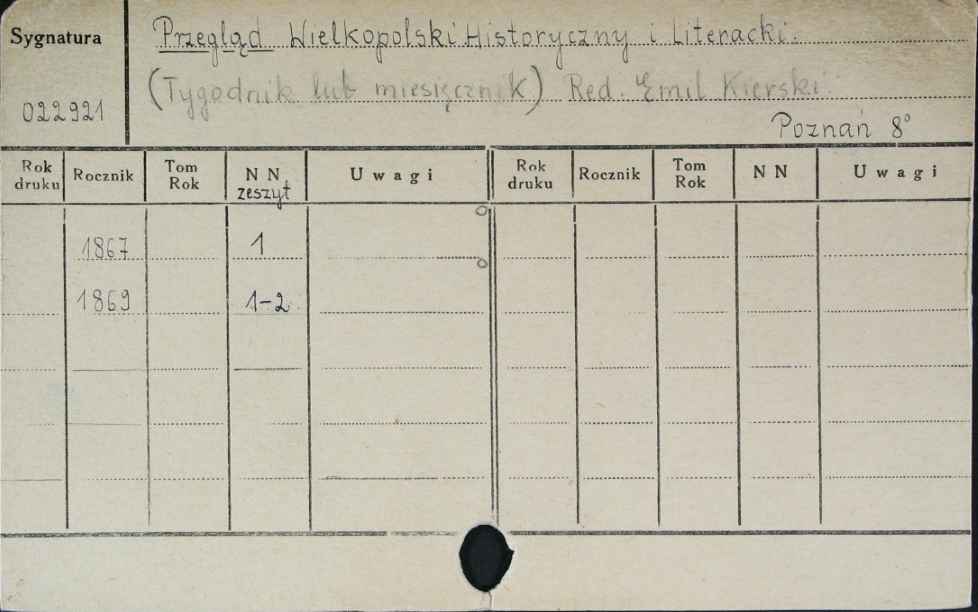 Sygnatura
Przegląd Wielkopolski Historyczny i Literacki.
(Tygodnik lub miesięcznik) Red. Emil Kierski.
022921
Poznań 8°
Rok druku Rocznik Tom Rok NN zeszyt Uwagi Rok druku Rocznik Tom Rok NN Uwagi
1867 1
1869 1-2